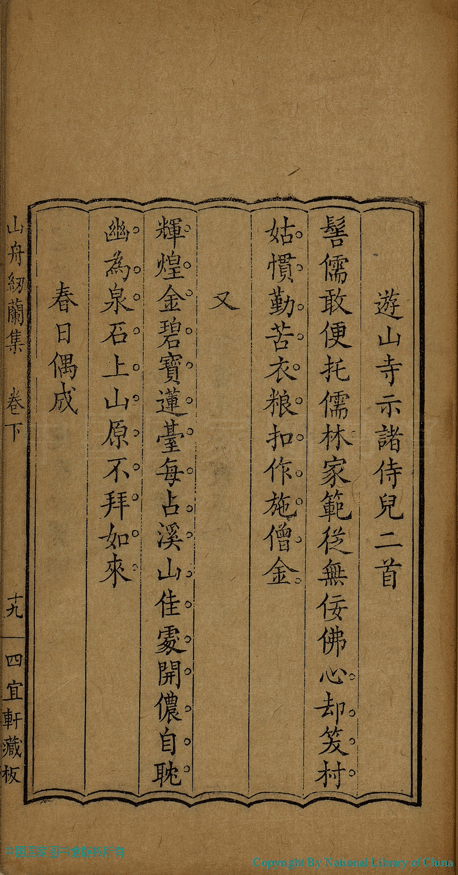 遊山寺示諸侍兒二首
髻儒敢便托儒林家範從無佞佛心却笑村
姑慣勤苦衣粮扣作施僧金
又
輝煌金碧寶蓮臺每占溪山佳處開儂自耽
幽為泉石上山原不拜如來
春日偶成
山舟紉蘭集 卷下 十九 四宜軒藏板
Copyright By National Library of China